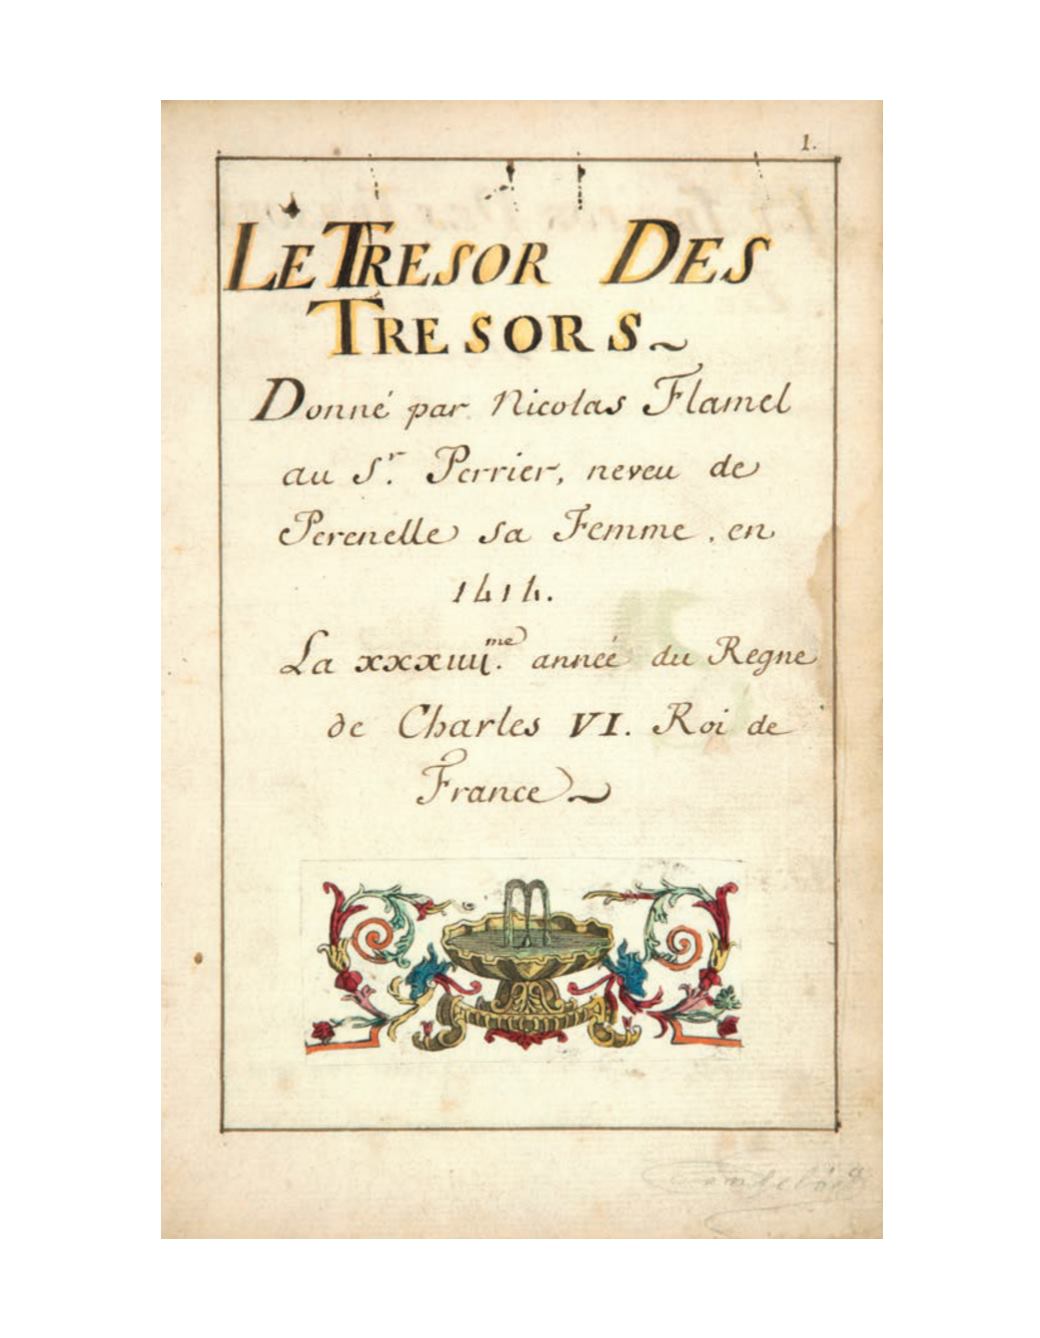 1.
LE TRESOR DES
TRESORS~
Donné par Nicolas Flamel
au Sr. Perrier, neveu de
Perenelle sa Femme, en
1414.
La xxxiiii.me année du Regne
de Charles VI. Roi de
France~